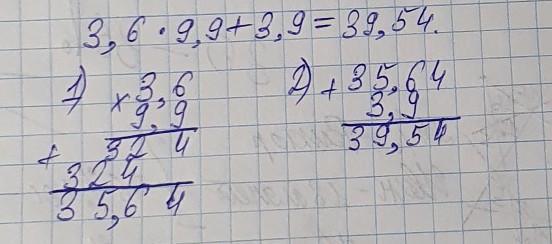 3,6 · 9,9 + 3,9 = 39,54.
1) × 3,6
9,9
+ 324
324
35,64
2) + 35,64
3,9
39,54